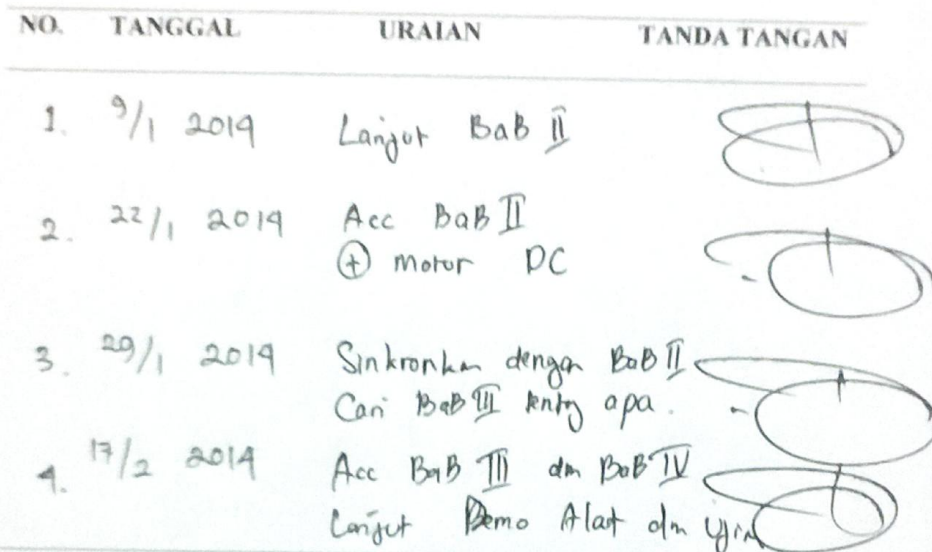 NO. TANGGAL URAIAN TANDA TANGAN
1. 9/1 2014 Lanjut BaB II
2. 22/1 2014 Acc BaB II
(+) motor DC
3. 29/1 2014 Sinkronkan dengan BaB II
Cari BaB III tentg apa.
4. 17/2 2014 Acc BaB III dan BaB IV
Lanjut Demo Alat dan Ujian